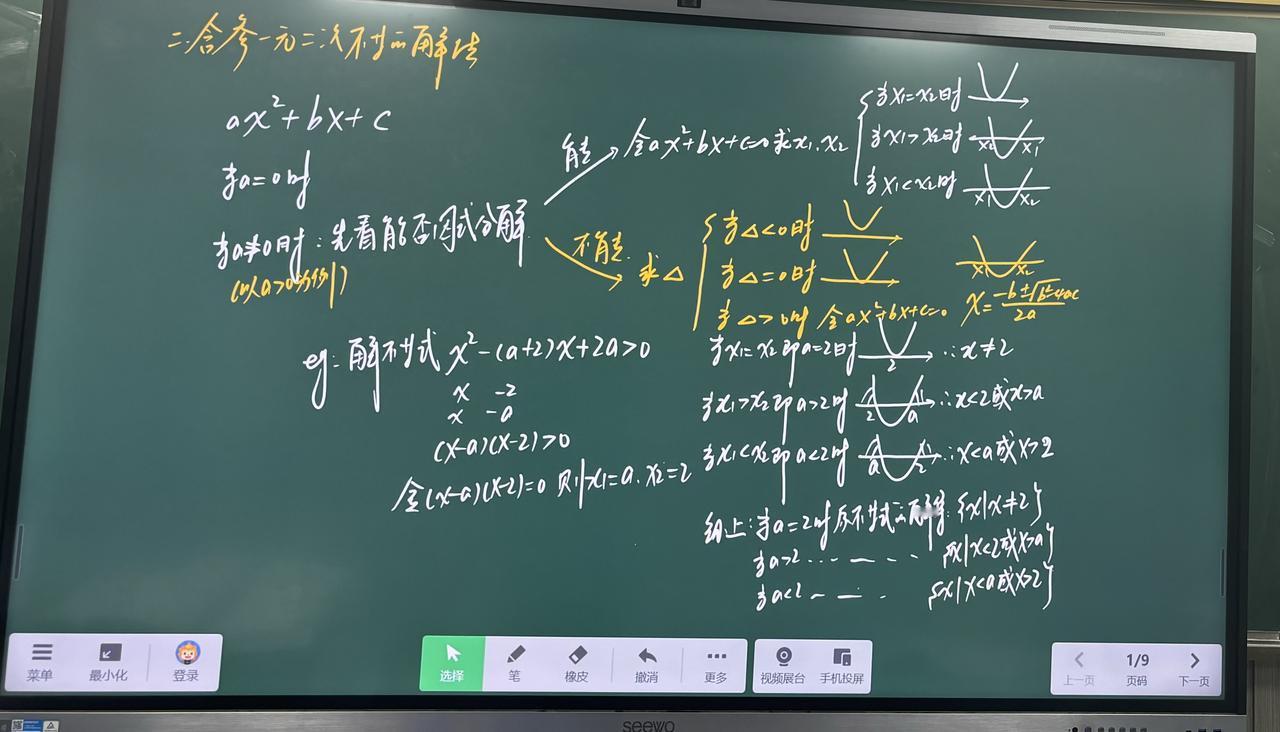 二.含参一元二次不等式的解法
ax²+bx+c
当a=0时
当a≠0时:先看能否因式分解
(以a>0为例)
能
令ax²+bx+c=0求x₁、x₂
当x₁=x₂时
当x₁>x₂时
x₂ x₁
当x₁<x₂时
x₁ x₂
不能
求△
当△<0时
当△=0时
当△>0时 令ax²+bx+c=0 x=(-b±√(b²-4ac))/2a
x₁ x₂
eg:解不等式 x²-(a+2)x+2a>0
x -2
x -a
(x-a)(x-2)>0
令(x-a)(x-2)=0 则x₁=a、x₂=2
当x₁=x₂即a=2时 2 ∴x≠2
当x₁>x₂即a>2时 2 a ∴x<2或x>a
当x₁<x₂即a<2时 a 2 ∴x<a或x>2
综上:当a=2时原不等式的解集{x|x≠2}
当a>2 {x|x<2或x>a}
当a<2 {x|x<a或x>2}
菜单 最小化 登录
选择 笔 橡皮 撤消 更多
视频展台 手机投屏
上一页 1/9 页码 下一页
seewo